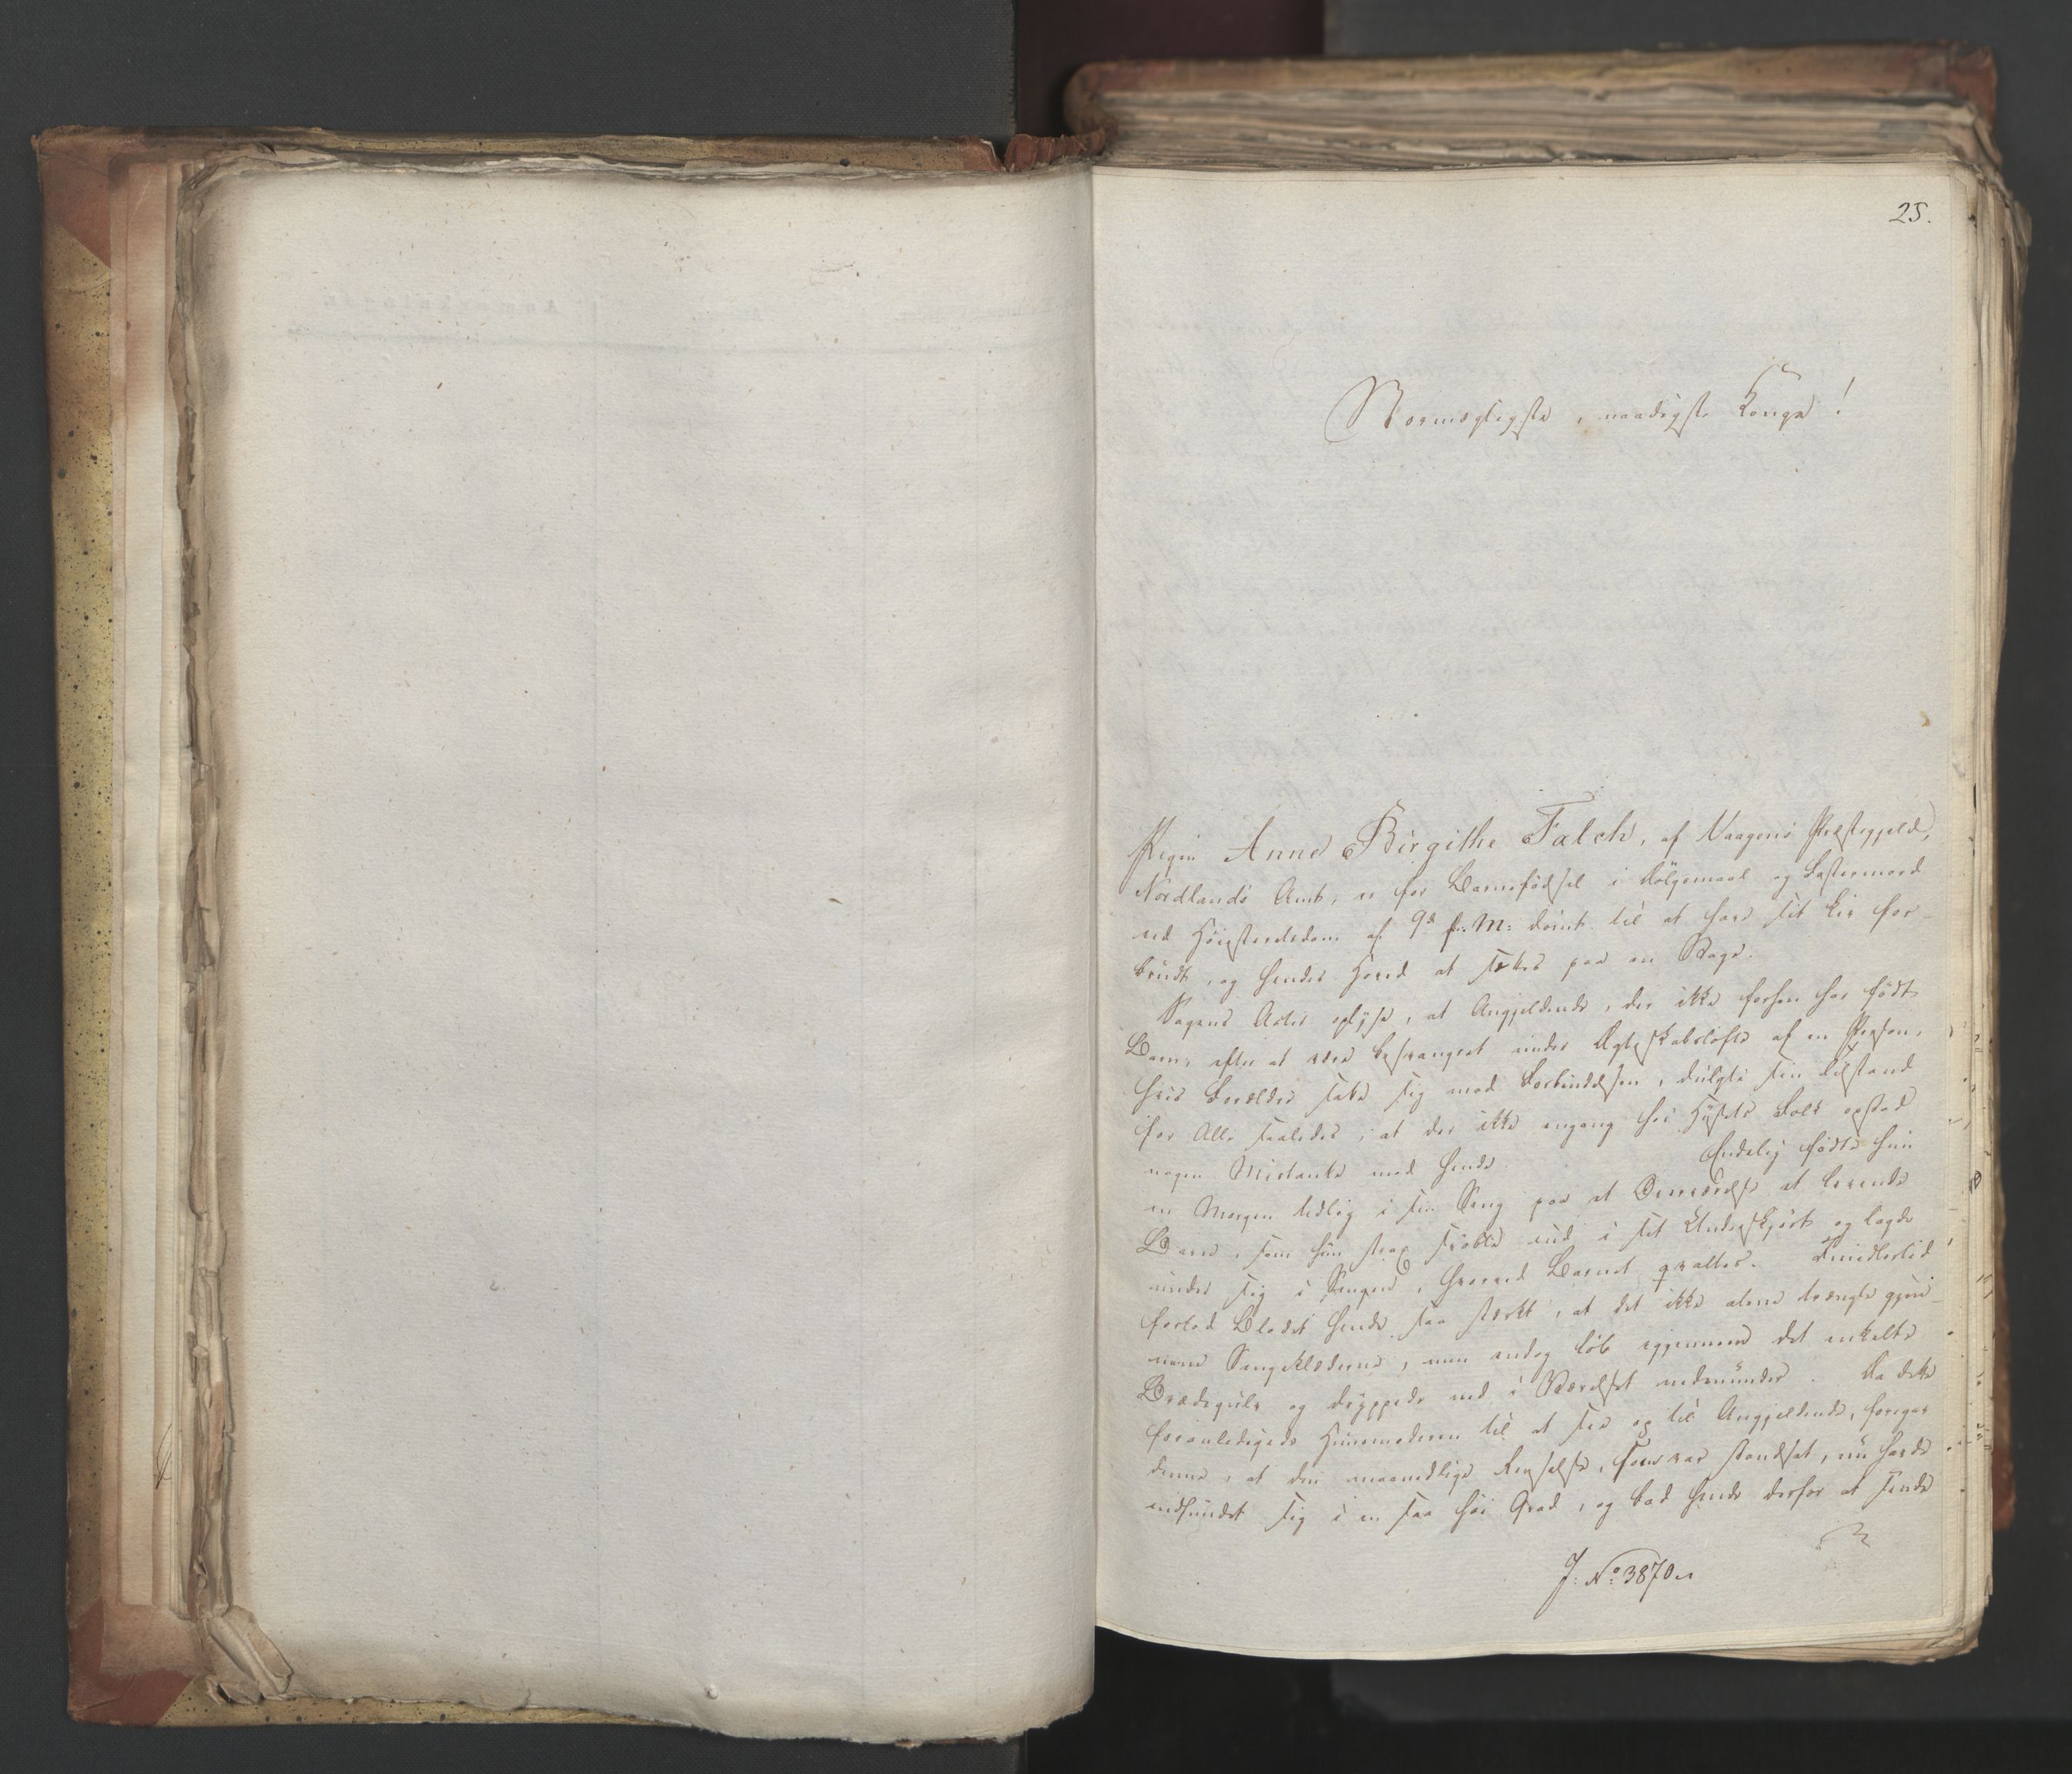 25.
Stormægtigste, naadigste Konge!
Pigen Anne Birgithe Falch, af Vaagens Præstegjeld,
Nordlands Amt, er for Barnefødsel i Dølgsmaal og Fostermord
ved Høiesteretsdom af 9de f. M: dømt til at have sit Liv for-
brudt, og hendes Hoved at sættes paa en Stage.
Sagens Acter oplyse, at Angjeldende, der ikke forhen har født
Barn, efter at være besvangret under Ægteskabsløfte af en Person,
hvis Forældre satte sig mod Forbindelsen, dulgte sin Tilstand
for Alle saaledes, at der ikke engang hos Husets Folk opstod
nogen Mistanke mod hende. Endelig fødte hun
en Morgen tidlig i sin Seng paa et Overværelse et levende
Barn, som hun strax svøbte ind i sit Underskjørt og lagde
under sig i Sengen, hvorved Barnet qvaltes. Imidlertid
forlod Blodet hende saa stærkt, at det ikke alene trængte gjen-
nem Sengeklæderne, men endog løb igjennem det enkelte
Brædegulv og dryppede ned i Værelset nedenunder. Da dette
foranledigede Huusmoderen til at see op til Angjeldende, foregav
denne, at den maanedlige Renselse, som var standset, nu havde
indfundet sig i en saa høi Grad, og bad hende derfor at sende
J: No 3870